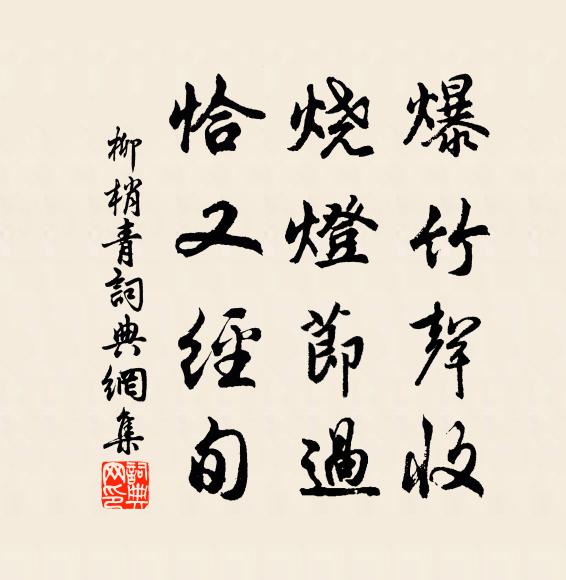 爆竹聲收
烧燈節過
恰又經旬
柳梢青詞典網集
詞典
网印